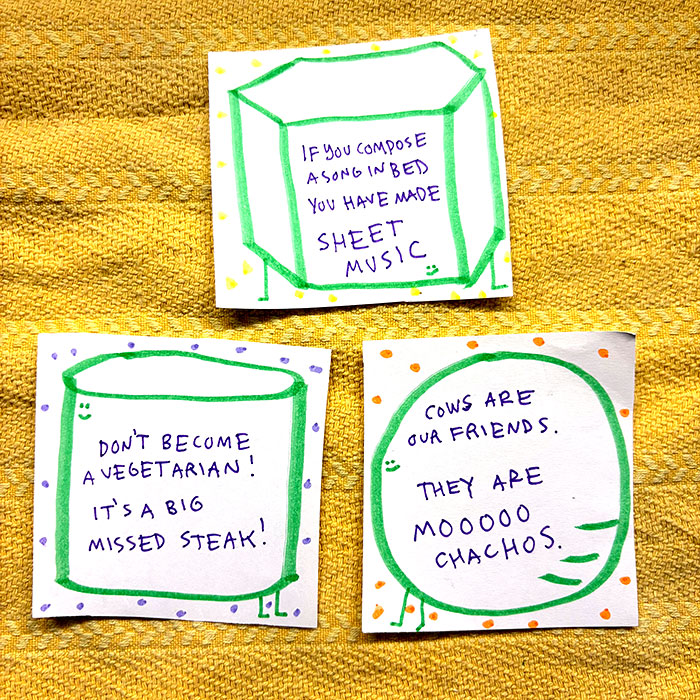 IF YOU COMPOSE
A SONG IN BED
YOU HAVE MADE
SHEET
MUSIC
DON'T BECOME
A VEGETARIAN!
IT'S A BIG
MISSED STEAK!
COWS ARE
OUR FRIENDS.
THEY ARE
MOOOOO
CHACHOS.